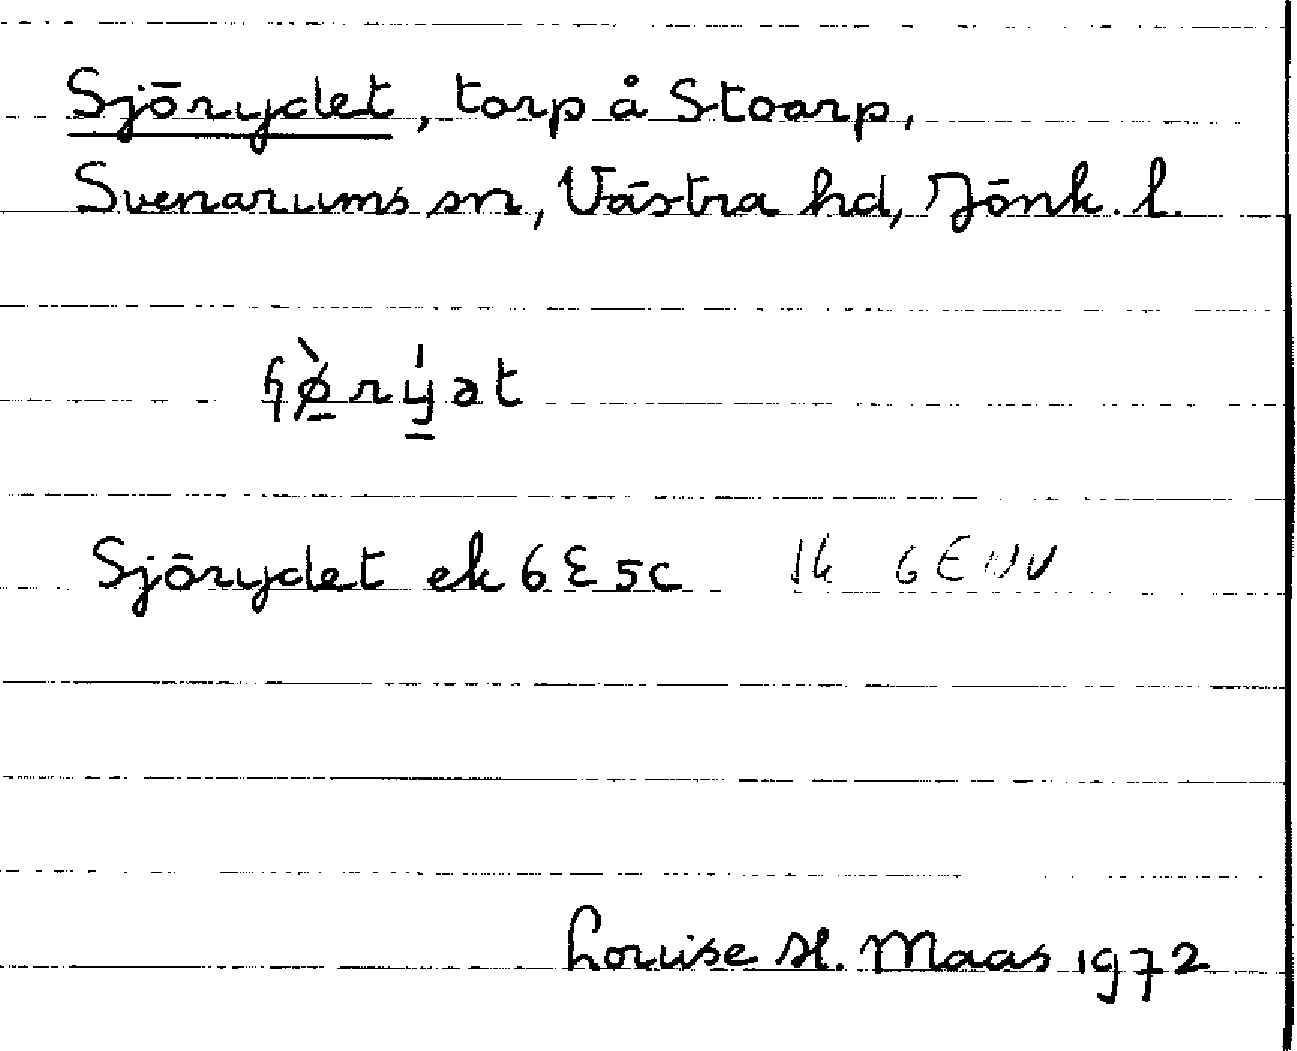 Sjörydet, torp å Stoarp,
Svenarums sn, Västra hd, Jönk. l.
ɧø̠̀rý̠ət
Sjörydet ek 6E5c Jk 6E NV
Louise H. Maas 1972